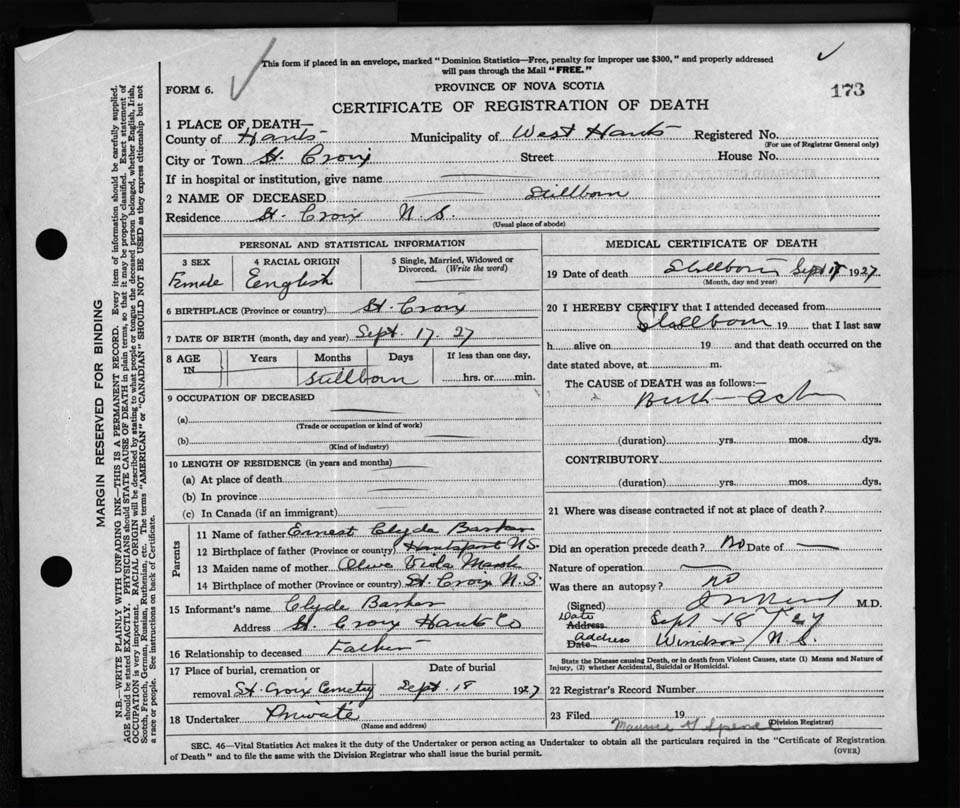 This form if placed in an envelope, marked "Dominion Statistics—Free, penalty for improper use $300," and properly addressed
will pass through the Mail "FREE."
FORM 6.
PROVINCE OF NOVA SCOTIA
173
CERTIFICATE OF REGISTRATION OF DEATH
1 PLACE OF DEATH—
County of Hants Municipality of West Hants Registered No.
(For use of Registrar General only)
City or Town St. Croix Street House No.
If in hospital or institution, give name
2 NAME OF DECEASED Stillborn
Residence St. Croix N. S.
(Usual place of abode)
PERSONAL AND STATISTICAL INFORMATION
3 SEX 4 RACIAL ORIGIN 5 Single, Married, Widowed or
Divorced. (Write the word)
Female English
6 BIRTHPLACE (Province or country) St. Croix
7 DATE OF BIRTH (month, day and year) Sept. 17. 27
8 AGE Years Months Days If less than one day,
IN Stillborn hrs. or min.
9 OCCUPATION OF DECEASED
(a)
(Trade or occupation or kind of work)
(b)
(Kind of industry)
10 LENGTH OF RESIDENCE (in years and months)
(a) At place of death
(b) In province
(c) In Canada (if an immigrant)
Parents
11 Name of father Ernest Clyde Barker
12 Birthplace of father (Province or country) Hantsport N.S.
13 Maiden name of mother Olive Viola
14 Birthplace of mother (Province or country) St. Croix N.S.
15 Informant's name Clyde Barker
Address St. Croix Hants Co
16 Relationship to deceased Father
17 Place of burial, cremation or Date of burial
removal St. Croix Cemetry Sept. 18 1927
18 Undertaker Private
(Name and address)
MEDICAL CERTIFICATE OF DEATH
19 Date of death Stillborn Sept 17 1927
(Month, day and year)
20 I HEREBY CERTIFY that I attended deceased from
Stillborn 19 that I last saw
h alive on 19 and that death occurred on the
date stated above, at m.
The CAUSE of DEATH was as follows:—
(duration) yrs. mos. dys.
CONTRIBUTORY
(duration) yrs. mos. dys.
21 Where was disease contracted if not at place of death?
Did an operation precede death? No Date of
Nature of operation
Was there an autopsy? no
(Signed) M.D.
Date
Address Sept 18
Address
Date Windsor N.S.
State the Disease causing Death, or in death from Violent Causes, state (1) Means and Nature of
Injury, (2) whether Accidental, Suicidal or Homicidal.
22 Registrar's Record Number
23 Filed 19
Maurice G Spence (Division Registrar)
SEC. 46—Vital Statistics Act makes it the duty of the Undertaker or person acting as Undertaker to obtain all the particulars required in the "Certificate of Registration
of Death" and to file the same with the Division Registrar who shall issue the burial permit. (OVER)
MARGIN RESERVED FOR BINDING
N.B.—WRITE PLAINLY WITH UNFADING INK—THIS IS A PERMANENT RECORD. Every item of information should be carefully supplied.
AGE should be stated EXACTLY. PHYSICIANS should STATE CAUSE OF DEATH in plain terms, so that it may be properly classified. Exact statement of
OCCUPATION is very important. RACIAL ORIGIN will be described by stating to what people or tongue the deceased person belonged, whether English, Irish,
Scotch, French, German, Russian, Ruthenian, etc. The terms "AMERICAN" or "CANADIAN" SHOULD NOT BE USED as they express citizenship but not
a race or people. See instructions on back of Certificate.